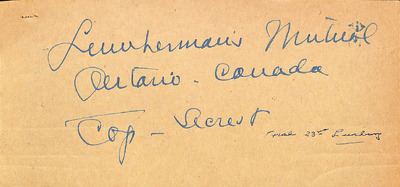 Lumberman's Mutual
Ontario - Canada
Top - Secrest
23rd